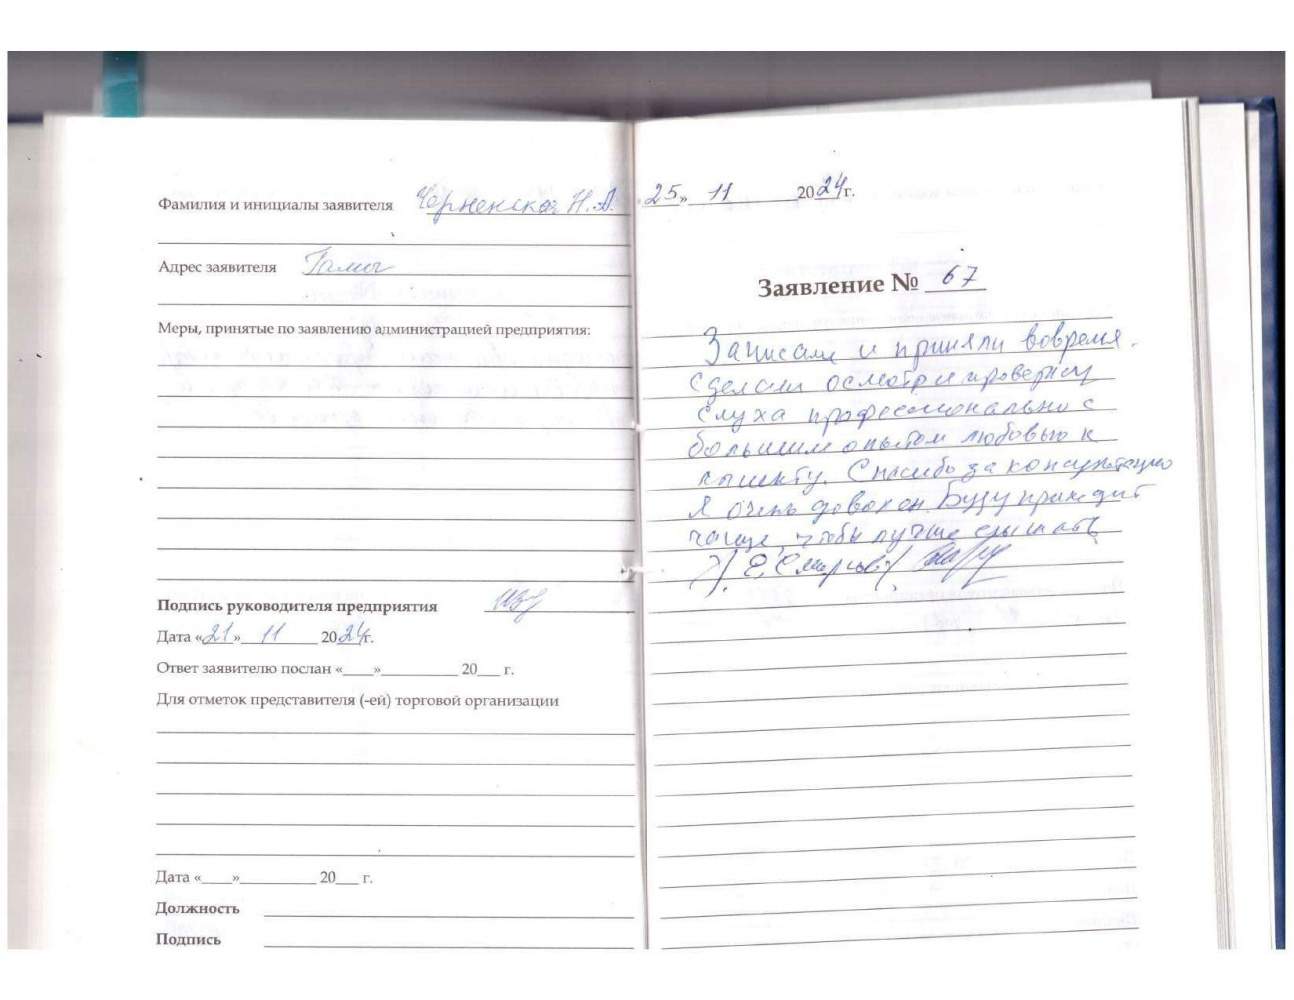 Фамилия и инициалы заявителя Черненская Н.А.
Адрес заявителя
Меры, принятые по заявлению администрацией предприятия:
Подпись руководителя предприятия
Дата «21» 11 2024г.
Ответ заявителю послан «___»__________ 20___ г.
Для отметок представителя (-ей) торговой организации
Дата «____»__________ 20___ г.
Должность
Подпись
25» 11 2024г.
Заявление № 67
Записали и приняли вовремя.
Сделали осмотр и проверку
слуха профессионально с
большим опытом любовью к
Спасибо за консультацию
Я очень доволен Буду приходит
чаще, чтобы лучше слышать